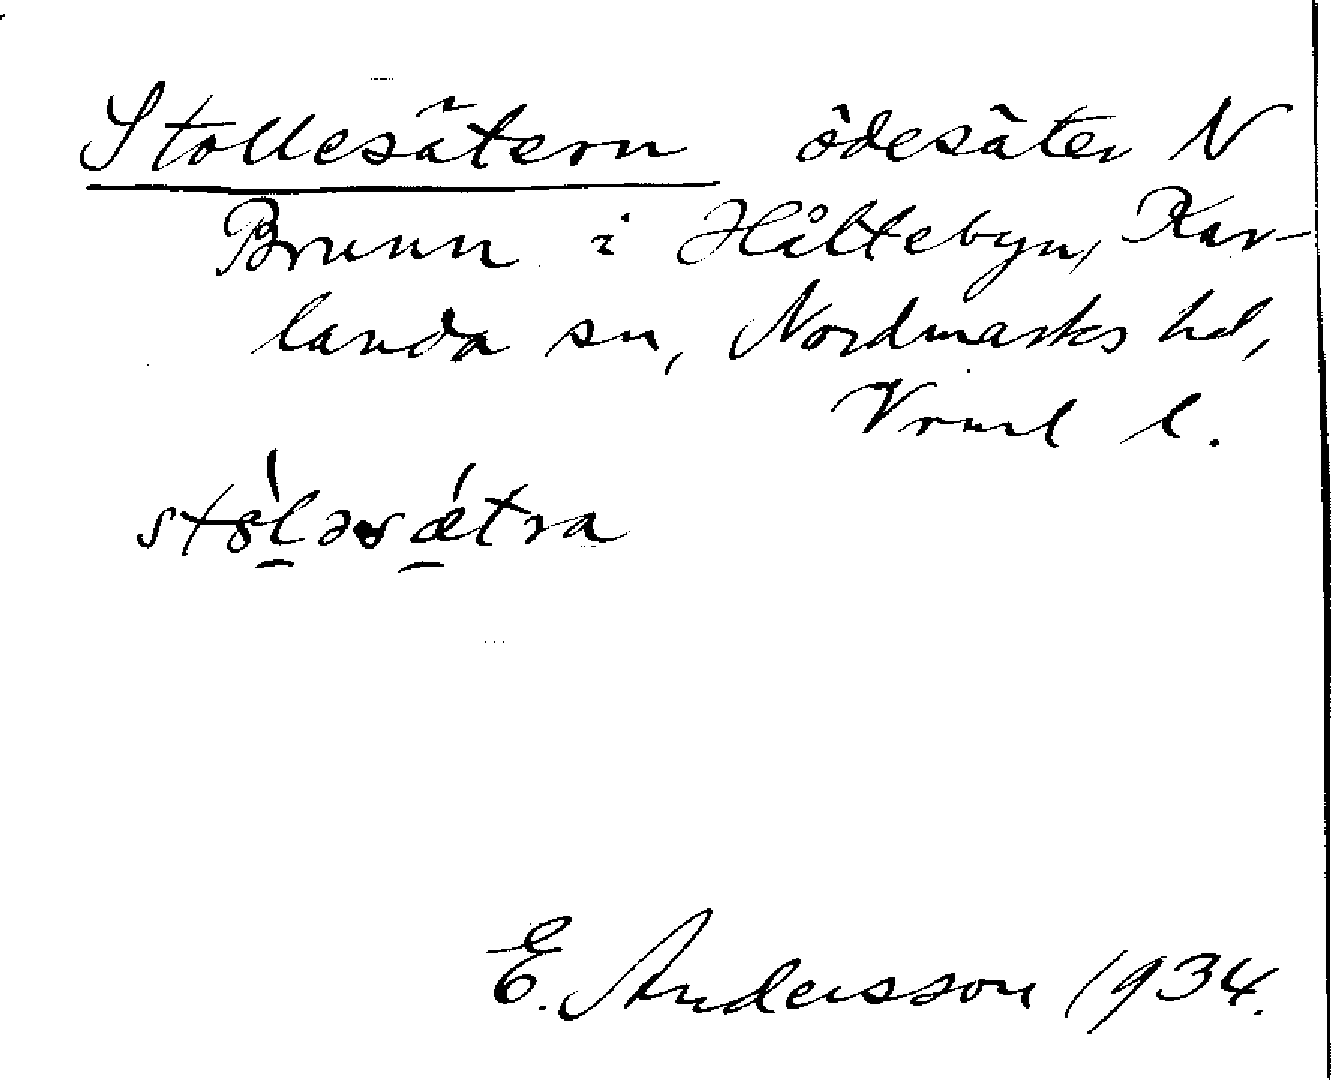 Stollesätern ödesäter N
Brunn i Håltebyn, Kar-
landa sn, Nordmarks hd,
Vrml l.
stȯ́ləsǽtra
E. Andersson 1934.